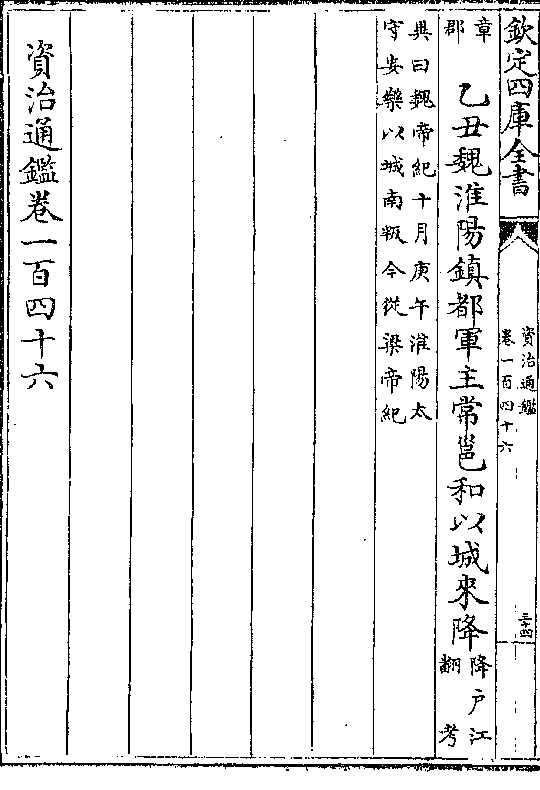 欽定四庫全書
資治通鑑
卷一百四十六
三十四
章
郡
乙丑魏淮陽鎮都軍主常邕和以城來降
降户江
翻 考
異曰魏帝紀十月庚午淮陽太
守安樂以城南叛今從梁帝紀
資治通鑑卷一百四十六